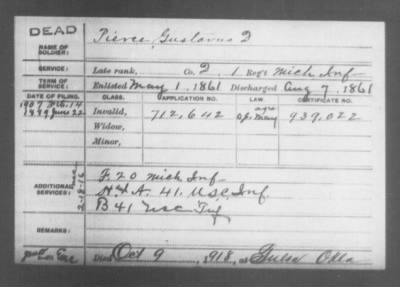 DEAD
NAME OF SOLDIER: Pierce, Gustavus
SERVICE: Late rank, Co. 2, 1 Reg't Mich Inf
TERM OF SERVICE: Enlisted May 1, 1861 Discharged Aug 7, 1861
DATE OF FILING. CLASS. APPLICATION NO. LAW CERTIFICATE NO.
1889 June 22 Invalid, 712,642 939,022
Widow,
Minor,
ADDITIONAL SERVICES: F 20 Mich Inf
2-18-16
41. USC, Inf.
B 41 USC Inf
REMARKS:
Died Oct 9, 1918, at Tulsa Okla